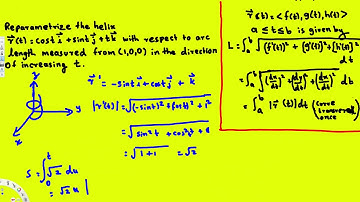 Reparametrize the helix
r⃗(t) = cost i⃗ + sint j⃗ + t k⃗ with respect to arc
length measured from (1,0,0) in the direction
of increasing t.
r⃗' = -sint i⃗ + cost j⃗ + k⃗
|r⃗'(t)| = √((-sint)² + (cost)² + 1²)
= √(sin²t + cos²t + 1)
= √(1+1) = √2
z
x
y
S = ∫₀ᵗ √2 du
= √2 u |
r⃗(t) = <f(t), g(t), h(t)>
a ≤ t ≤ b is given by
L = ∫ₐᵇ √([f'(t)]² + [g'(t)]² + [h'(t)]²) dt
= ∫ₐᵇ √((dx/dt)² + (dy/dt)² + (dz/dt)²) dt
= ∫ₐᵇ |r⃗'(t)| dt (curve
traversed
once